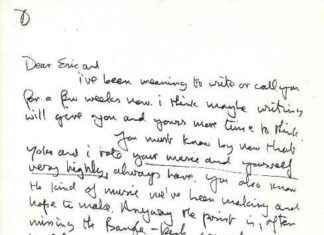 Dear Eric and
i've been meaning to write or call you
for a few weeks now. i think maybe writing
will give you and yours more time to think.
You must know by now that
Yoko and i rate your music and yourself
very highly, always have. You also know
the kind of music we've been making and
hope to make. Anyway the point is, after
missing the Bangla-